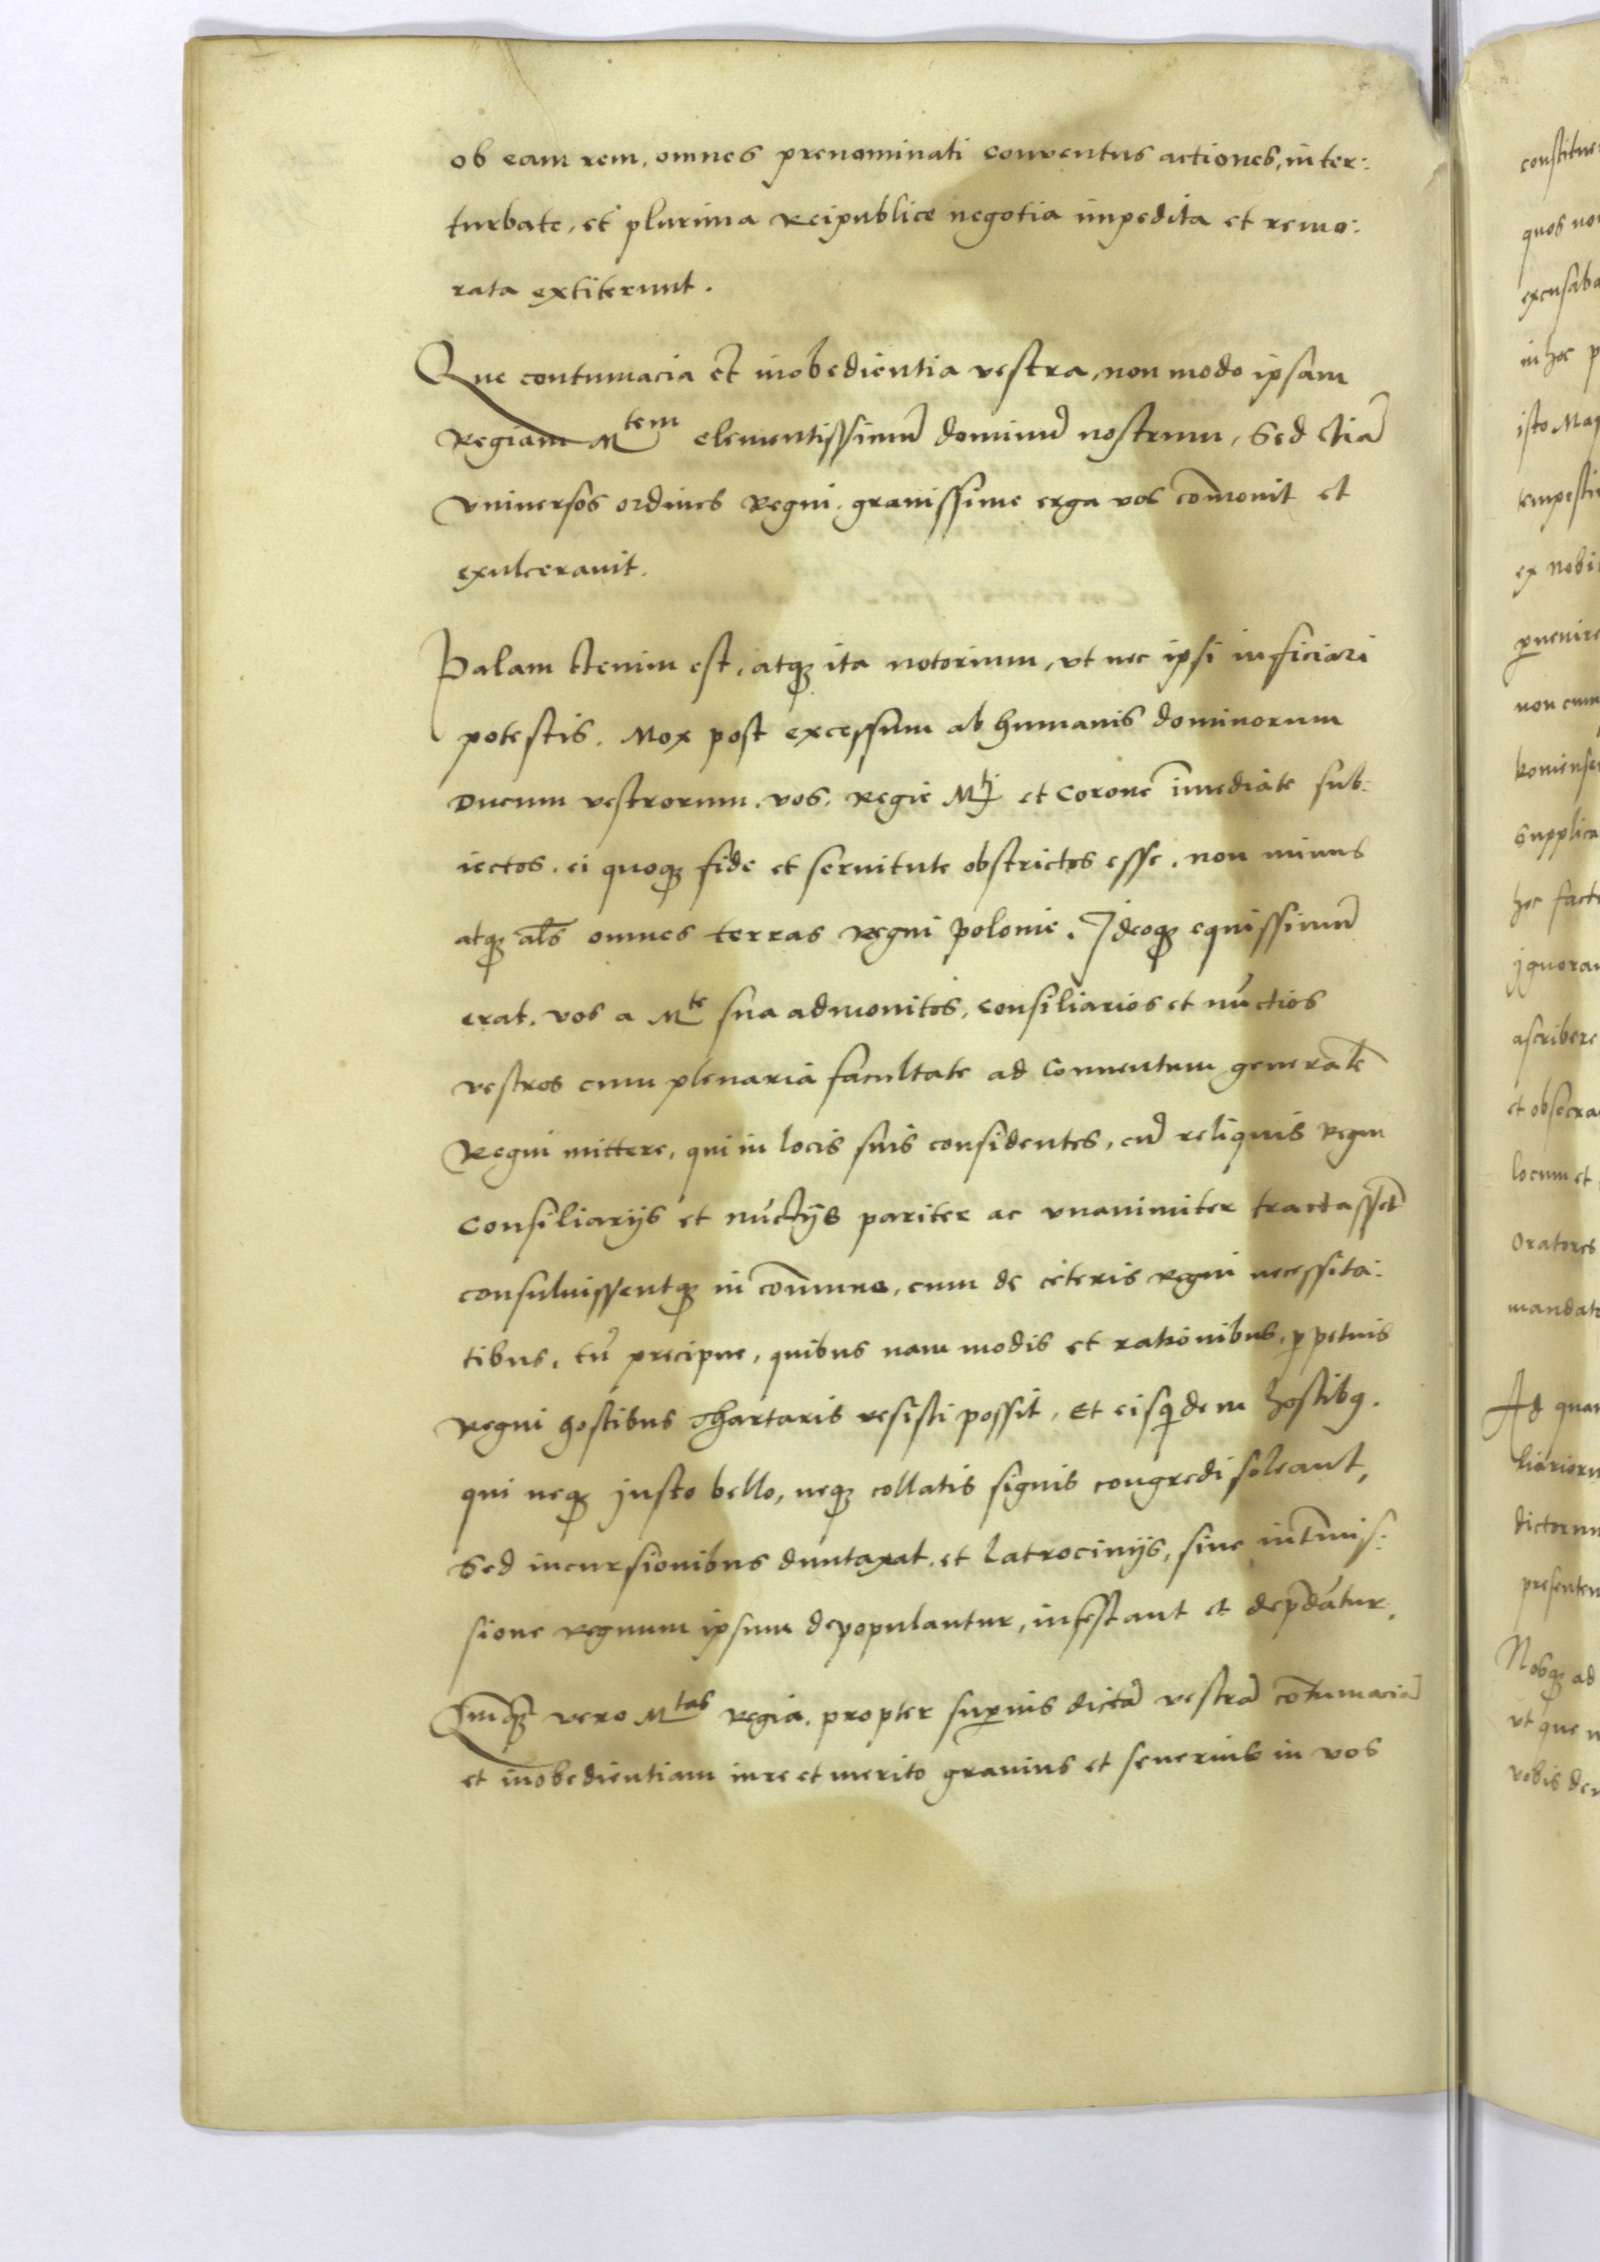 ob eam rem, omnes prenominati conventus actiones, inter:
turbate, et plurima Reipublice negotia impedita et remo:
rata extiterunt.
Que contumacia et inobedientia vestra, non modo ipsam
Regiam M^tem clementissimū dominū nostrum, Sed etiā
vniuersos ordines Regni, grauissime erga vos com̄ouit et
exulcerauit.
Palam etenim est, atq̨ ita notorium, vt nec ipsi inficiari
potestis. Mox post excessum ab humanis dominorum
Ducum vestrorum, vos, Regie M^ti et Corone im̄ediate sub:
iectos, ei quoq̨ fide et seruitute obstrictos esse, non minus
atq̨ al̄s omnes terras Regni Polonie. Ideoq̨ equissimū
erat, vos a M^te sua admonitos, consiliarios et nūctios
vestros cum plenaria facultate ad Conuentum generalē
Regni mittere, qui in locis suis considentes, cū reliquis Regni
Consiliarijs et nūctijs pariter ac vnanimiter tractassēt
consuluissentq̨ in com̄une, cum de ceteris regni necessita:
tibus, tū precipue, quibus nam modis et rationibus, p̱petuis
Regni hostibus Thartaris resisti possit, Et eisq̨dem hostibꝯ.
qui neq̨ justo bello, neq̨ collatis signis congredi soleant,
Sed incursionibus duntaxat, et Latrocinijs, sine int̄mis:
sione Regnum ipsum depopulantur, infestant et dep̄dātur.
Quāq̨ vero M^tas Regia, propter sup̱ius dictā vestrā contumaciā
et inobedientiam iure et merito grauius et seuerius in vos
constitue
quos no
excusaba
in hoc p
isto Ma
tempesti
ex Nobi
p̱uenire
non cum
supplica
hoc fact
ignora
ascribere
et obsecra
locum et
Oratores
mandat
Ad qua
liariorū
dictorum
presente
Nobisq̨ ad
vt que
vobis de